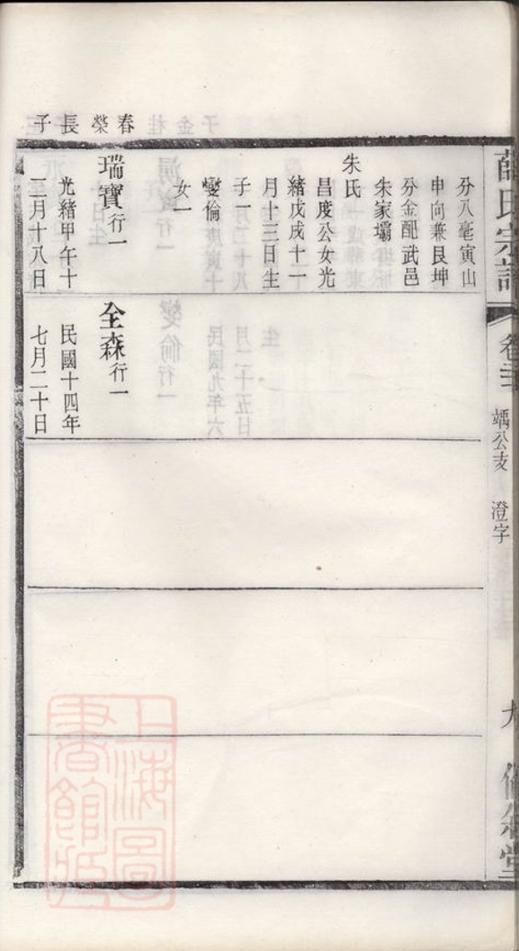 薛氏宗譜
卷三
竬公支
澄字
九
子長榮春
分八毫寅山
申向兼艮坤
分金配武邑
朱家壩
朱氏
昌度公女光
緒戊戌十一
月十三日生
子一
燮倫
女一
瑞寶行一
光緒甲午十
二月十八日
全森行一
民國十四年
七月二十日
上海圖
書館臧